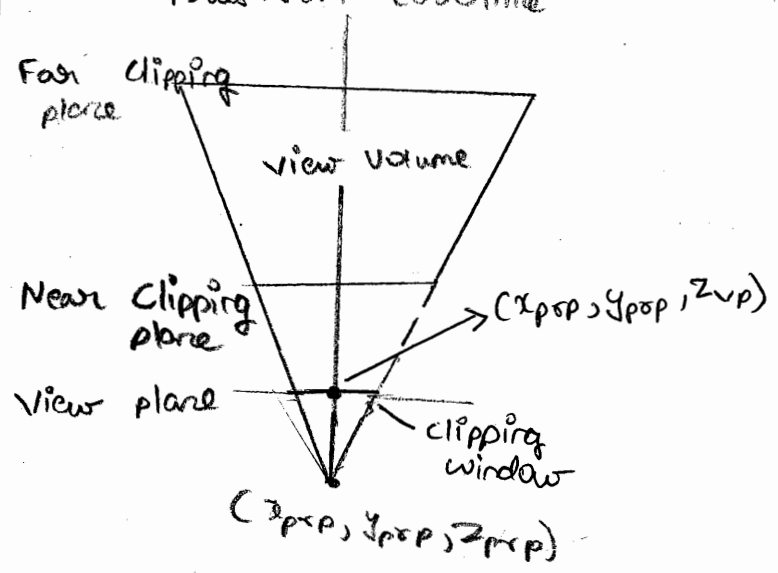 Far Clipping
plane
view volume
Near Clipping
plane
(xprp, yprp, zvp)
View plane
clipping
window
(xprp, yprp, zprp)